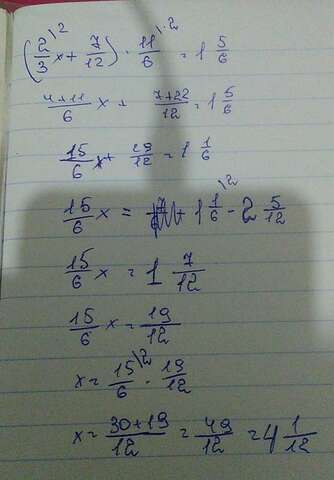 (2/3\2 x + 7/12) · 11/6\·2 = 1 5/6
4+11/6 x + 7+22/12 = 1 5/6
15/6 x + 29/12 = 1 1/6
15/6 x = 1 1/6\2 - 2 5/12
15/6 x = 1 7/12
15/6 x = 19/12
x = 15/6\2 · 19/12
x = 30+19/12 = 49/12 = 4 1/12